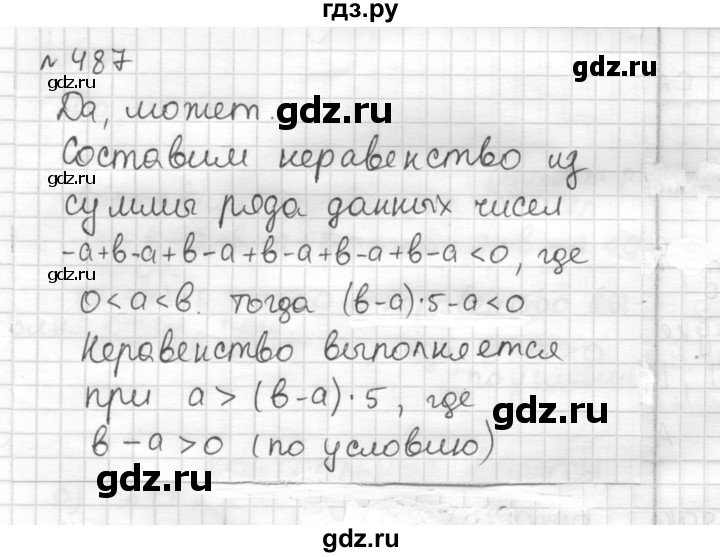 гдз.ру
№ 487
gdz.ru
Да, может. gdz.ru
Составим неравенство из
gdz.ru
суммы ряда данных чисел
-а+в-а+в-а+в-а+в-а+в-а<0, где
gdz.ru gdz.ru
0<а<в. тогда (в-а)·5-а<0
Неравенство выполняется
при а>(в-а)·5, где
в-а>0 (по условию)
gdz.ru gdz.ru
gdz.ru